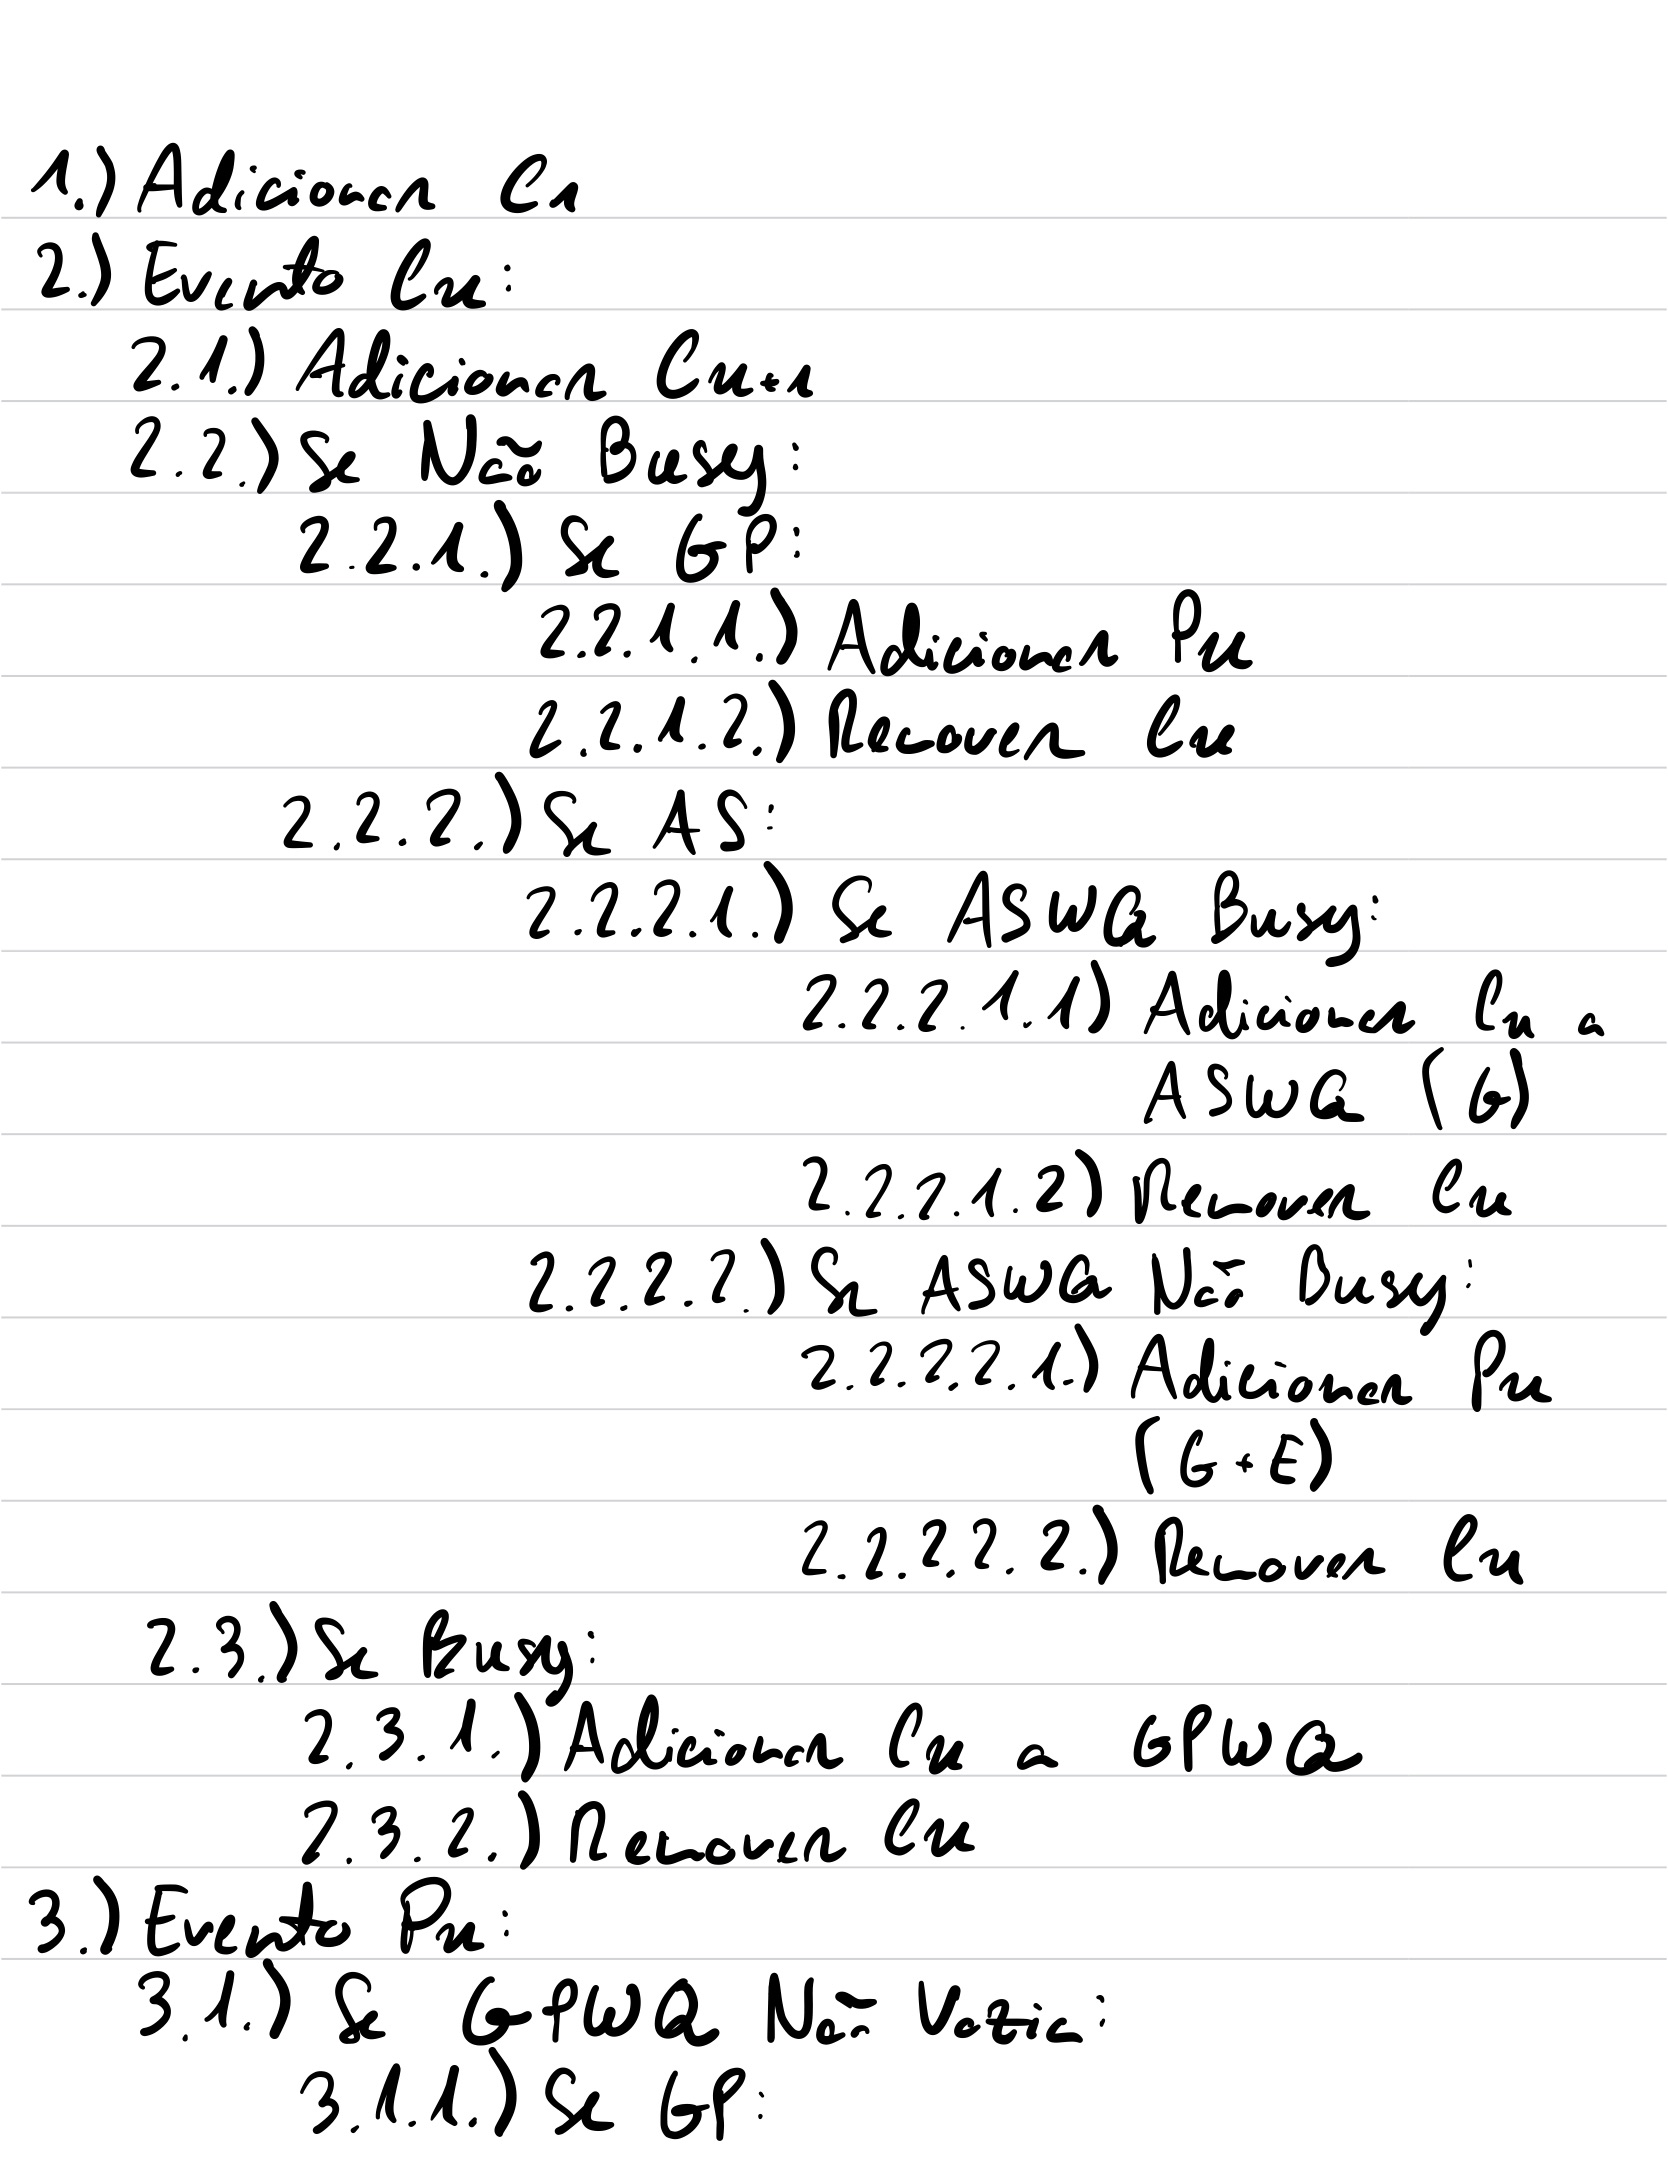 1.) Adicionar C1
2.) Evento Cn:
2.1.) Adicionar Cn+1
2.2.) Se Não Busy:
2.2.1.) Se GP:
2.2.1.1.) Adicionar Pn
2.2.1.2.) Remover Cn
2.2.2.) Se AS:
2.2.2.1.) Se ASWQ Busy:
2.2.2.1.1) Adicionar Cn a
ASWQ (G)
2.2.2.1.2) Remover Cn
2.2.2.2.) Se ASWQ Não Busy:
2.2.2.2.1.) Adicionar Pn
(G+E)
2.2.2.2.2.) Remover Cn
2.3.) Se Busy:
2.3.1.) Adicionar Cn a GPWQ
2.3.2.) Remover Cn
3.) Evento Pn:
3.1.) Se GPWQ Não Vazia:
3.1.1.) Se GP: